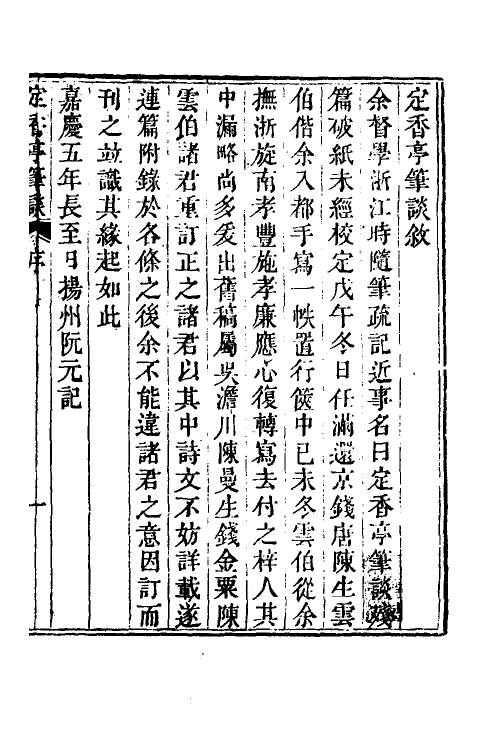 定香亭筆談敘
余督學浙江時隨筆疏記近事名曰定香亭筆談殘
篇破紙未經校定戊午冬日任滿還京錢唐陳生雲
伯偕余入都手寫一帙置行篋中己未冬雲伯從余
撫浙旋南孝豐施孝廉應心復轉寫去付之梓人其
中漏略尚多爰出舊稿屬吳澹川陳曼生錢金粟陳
雲伯諸君重訂正之諸君以其中詩文不妨詳載遂
連篇附錄於各條之後余不能違諸君之意因訂而
刊之竝識其緣起如此
嘉慶五年長至日揚州阮元記
定香亭筆談 序 一